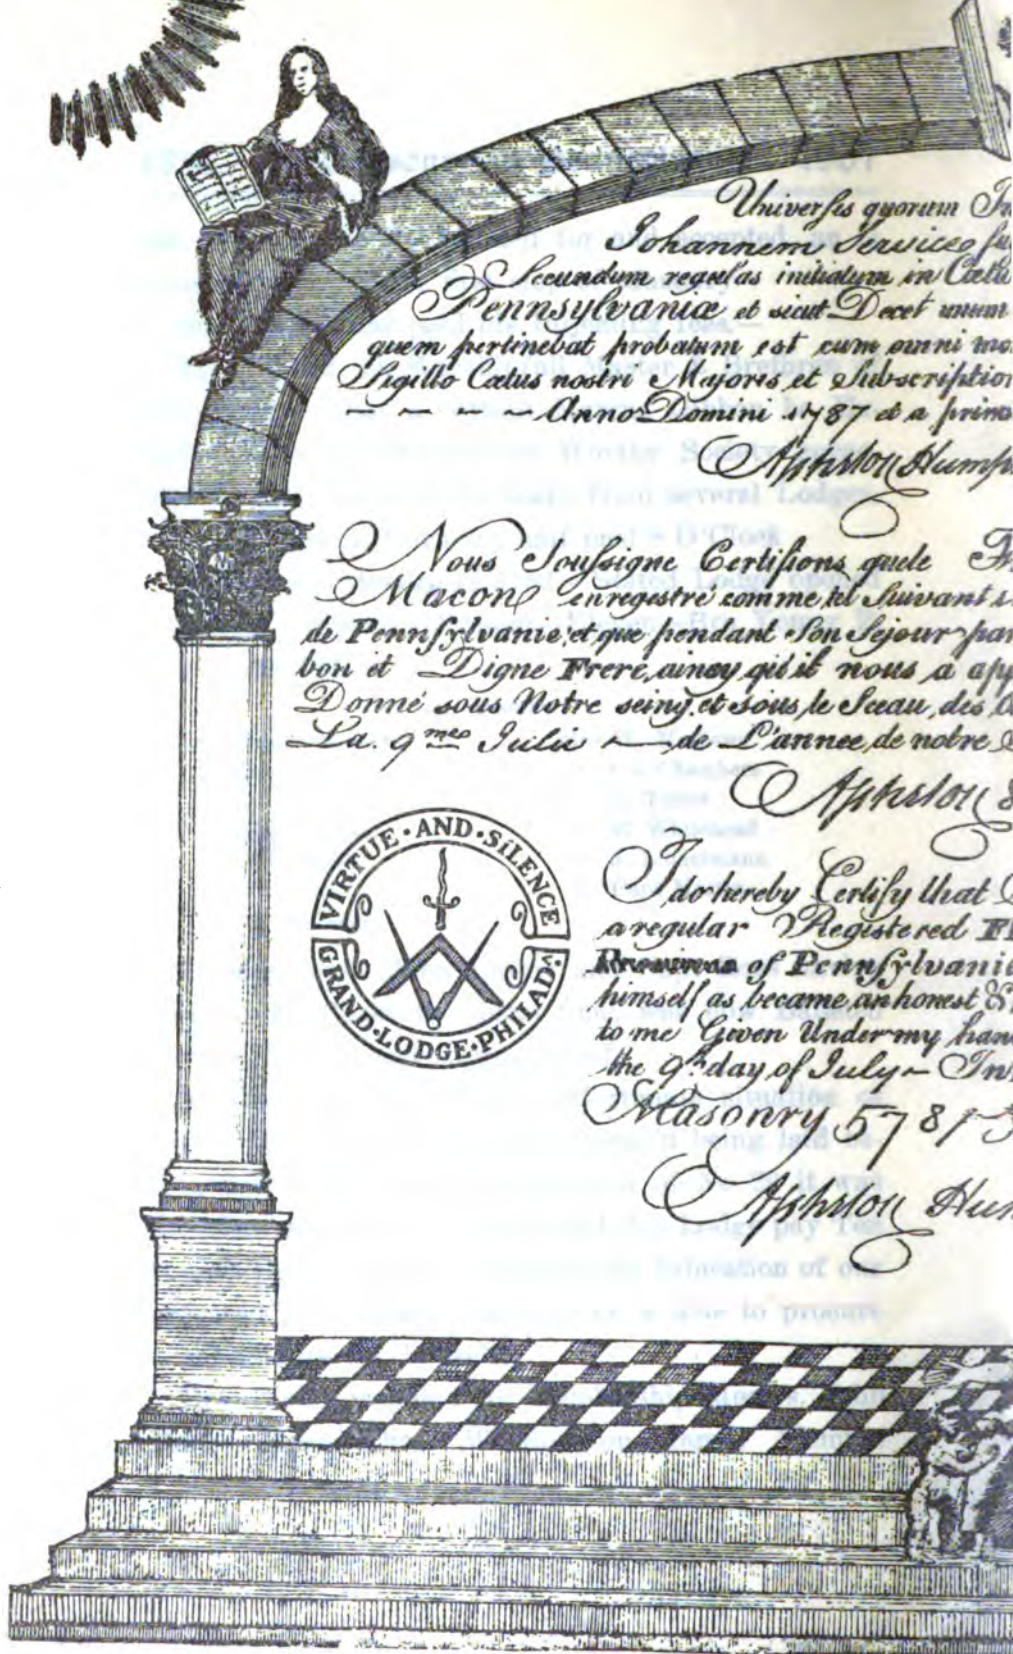 Universes quorum
Johannem Service
Secundum regulas initiatum in Cœtu
Pennsylvaniæ et sicut Decet unum
quem pertinebat probatum est cum omni
Sigillo Cœtus nostri Majoris et Subscription
Anno Domini 1787 et a primo
Ashston Humph
Nous Soussigne Certifions quele
Macon enregistré comme tel Suivant
de Pennsylvanie; et que pendant Son Sejour par
bon et Digne Frere, ainsy qil it nous a app
Donné sous Notre seing, et sous, le Sceau, des
La. 9mes Julie de L'annee, de notre
Ashston
VIRTUE·AND·SILENCE
GRAND·LODGE·PHILADA
I do hereby Certify that
a regular Registered
Province of Pennsylvani
himself as became an honest &
to me Given Under my han
the 9th day of July — In
Masonry 578
Ashston Hum